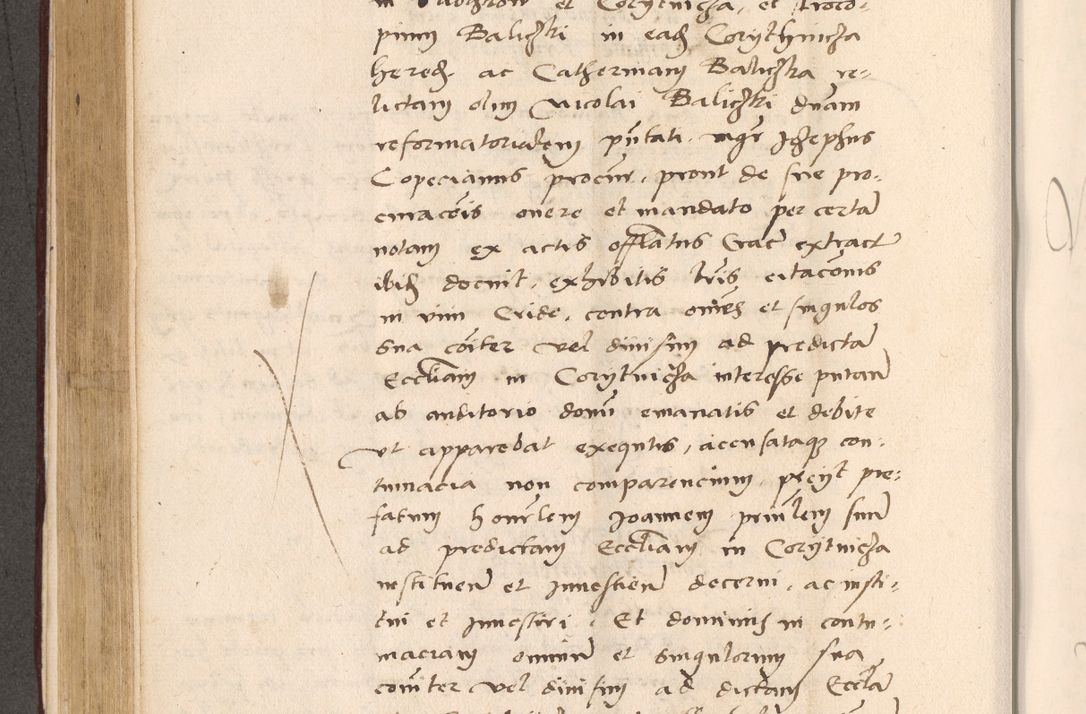 in et Corytnicza, et Proco-
pium Baliczki in ead Corythnicza
hered. ac Catherinam Baliczka re-
lictam olim Nicolai Baliczki dnam
reformatorialem pntati. mgr Jozephus
Copecianus procur, prout de sue pro-
curacōis onere et mandato per certā
notam ex actis offlatus Crac extract
ibid docuit, exhibitis lris citacōnis
in vim Cride, contra omes et singulos
sua cōiter vel divisim ad predictā
Eccliam in Corytnicza interesse putan
ab auditorio domi emanatis et debite
ut apparebat exequtis, accusataque con-
tumacia non comparencium, petyt pre-
fatum honorlem Joannem priulem suū
ad predictam Eccliam in Corytnicza
instituend et Investiend decerni, ac insti-
tui et Investiri. Et dominus in contu-
maciam omnium et singulorum sua
comiter vel divisim ad dictam Ecclā